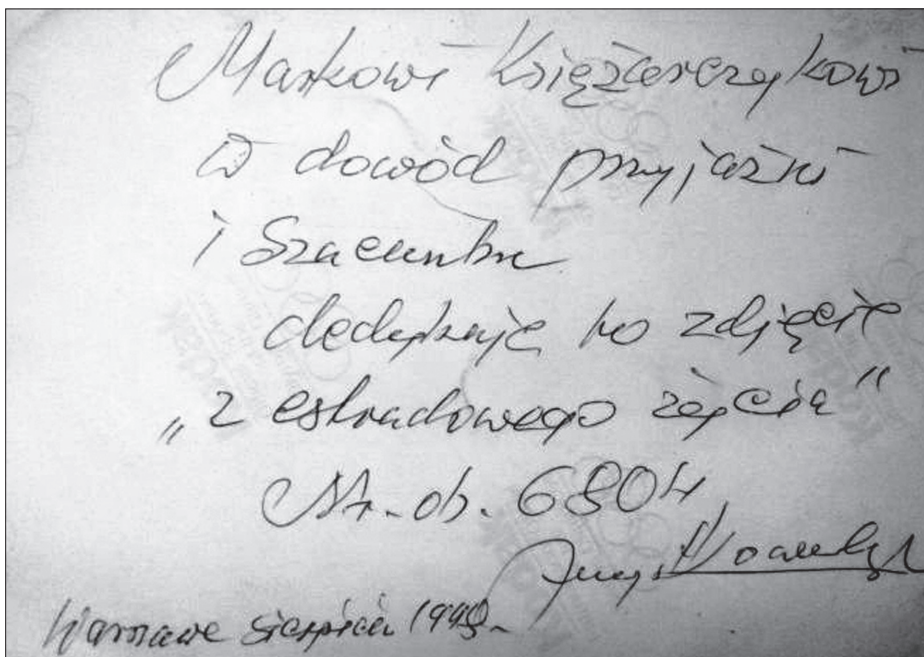 Markowi Księżarczykowi
W dowód przyjaźni
i Szacunku
dedykuję to zdjęcie
„z estradowego życia”
Nr. ob. 6804
Jerzy
Warszawa sierpień 199